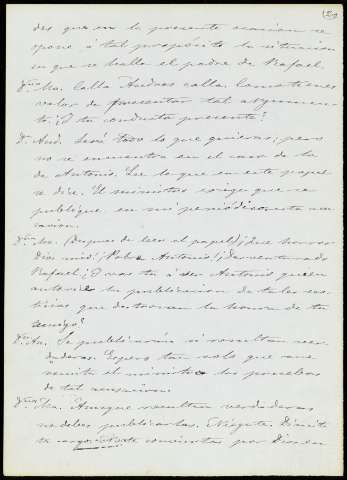 (29)
des que en la presente ocasion se
opone á tal propósito la situacion
en que se halla el padre de Rafael.
Dª Ma. Calla Andres calla. Como tienes
valor de presentar tal argumen-
to. ¿Y tu conducta presente?
Dn. And. Será todo lo que quieras, pero
no se encuentra en el caso de la
de Antonio. Lee lo que en este papel
se dice. El ministro exige que se
publique en mi periódico esta acu-
sacion.
Dª Ma. (Despues de leer el papel) ¡Que horror
Dios mio! ¡Pobre Antonio! ¡Desventurado
Rafael! ¿Y vas tú á ser Antonio quien
autorice la publicacion de tales no-
ticias que destrozan la honra de tu
amigo?
Dn. An. Se publicarán si resultan ver-
daderas. Espero tan solo que me
remita el ministro las pruebas
de tal acusacion.
Dª Ma. Aunque resulten verdaderas
no debes publicarlas. Niegate. Dimite
tu cargo. conciertas por Dios en